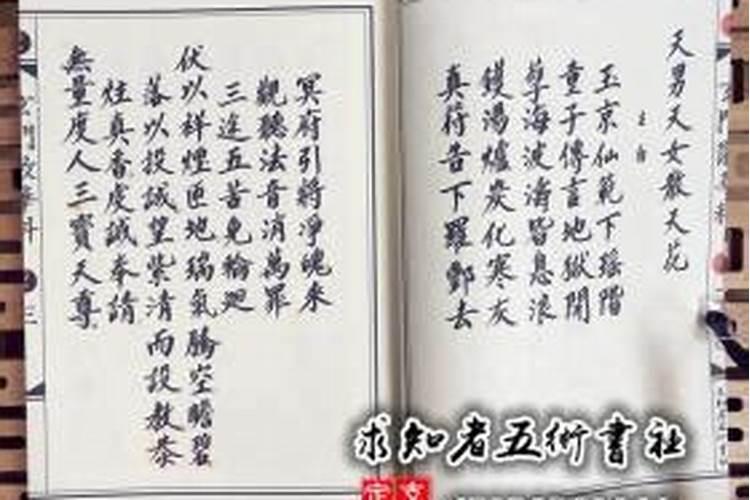 天男天女散天花
玉京仙範下瑶階
童子傳言地獄開
孽海波濤皆息浪
鑊湯爐炭化寒灰
真符告下羅酆去
冥府引將淨魄来
觀聽法音消萬罪
三途五苦免輪廻
伏以祥煙匝地瑞氣騰空瞻碧
落以投誠望紫清而設教恭
炷真香虔誠奉請
無量度人三寶天尊
三
求知者五術書社